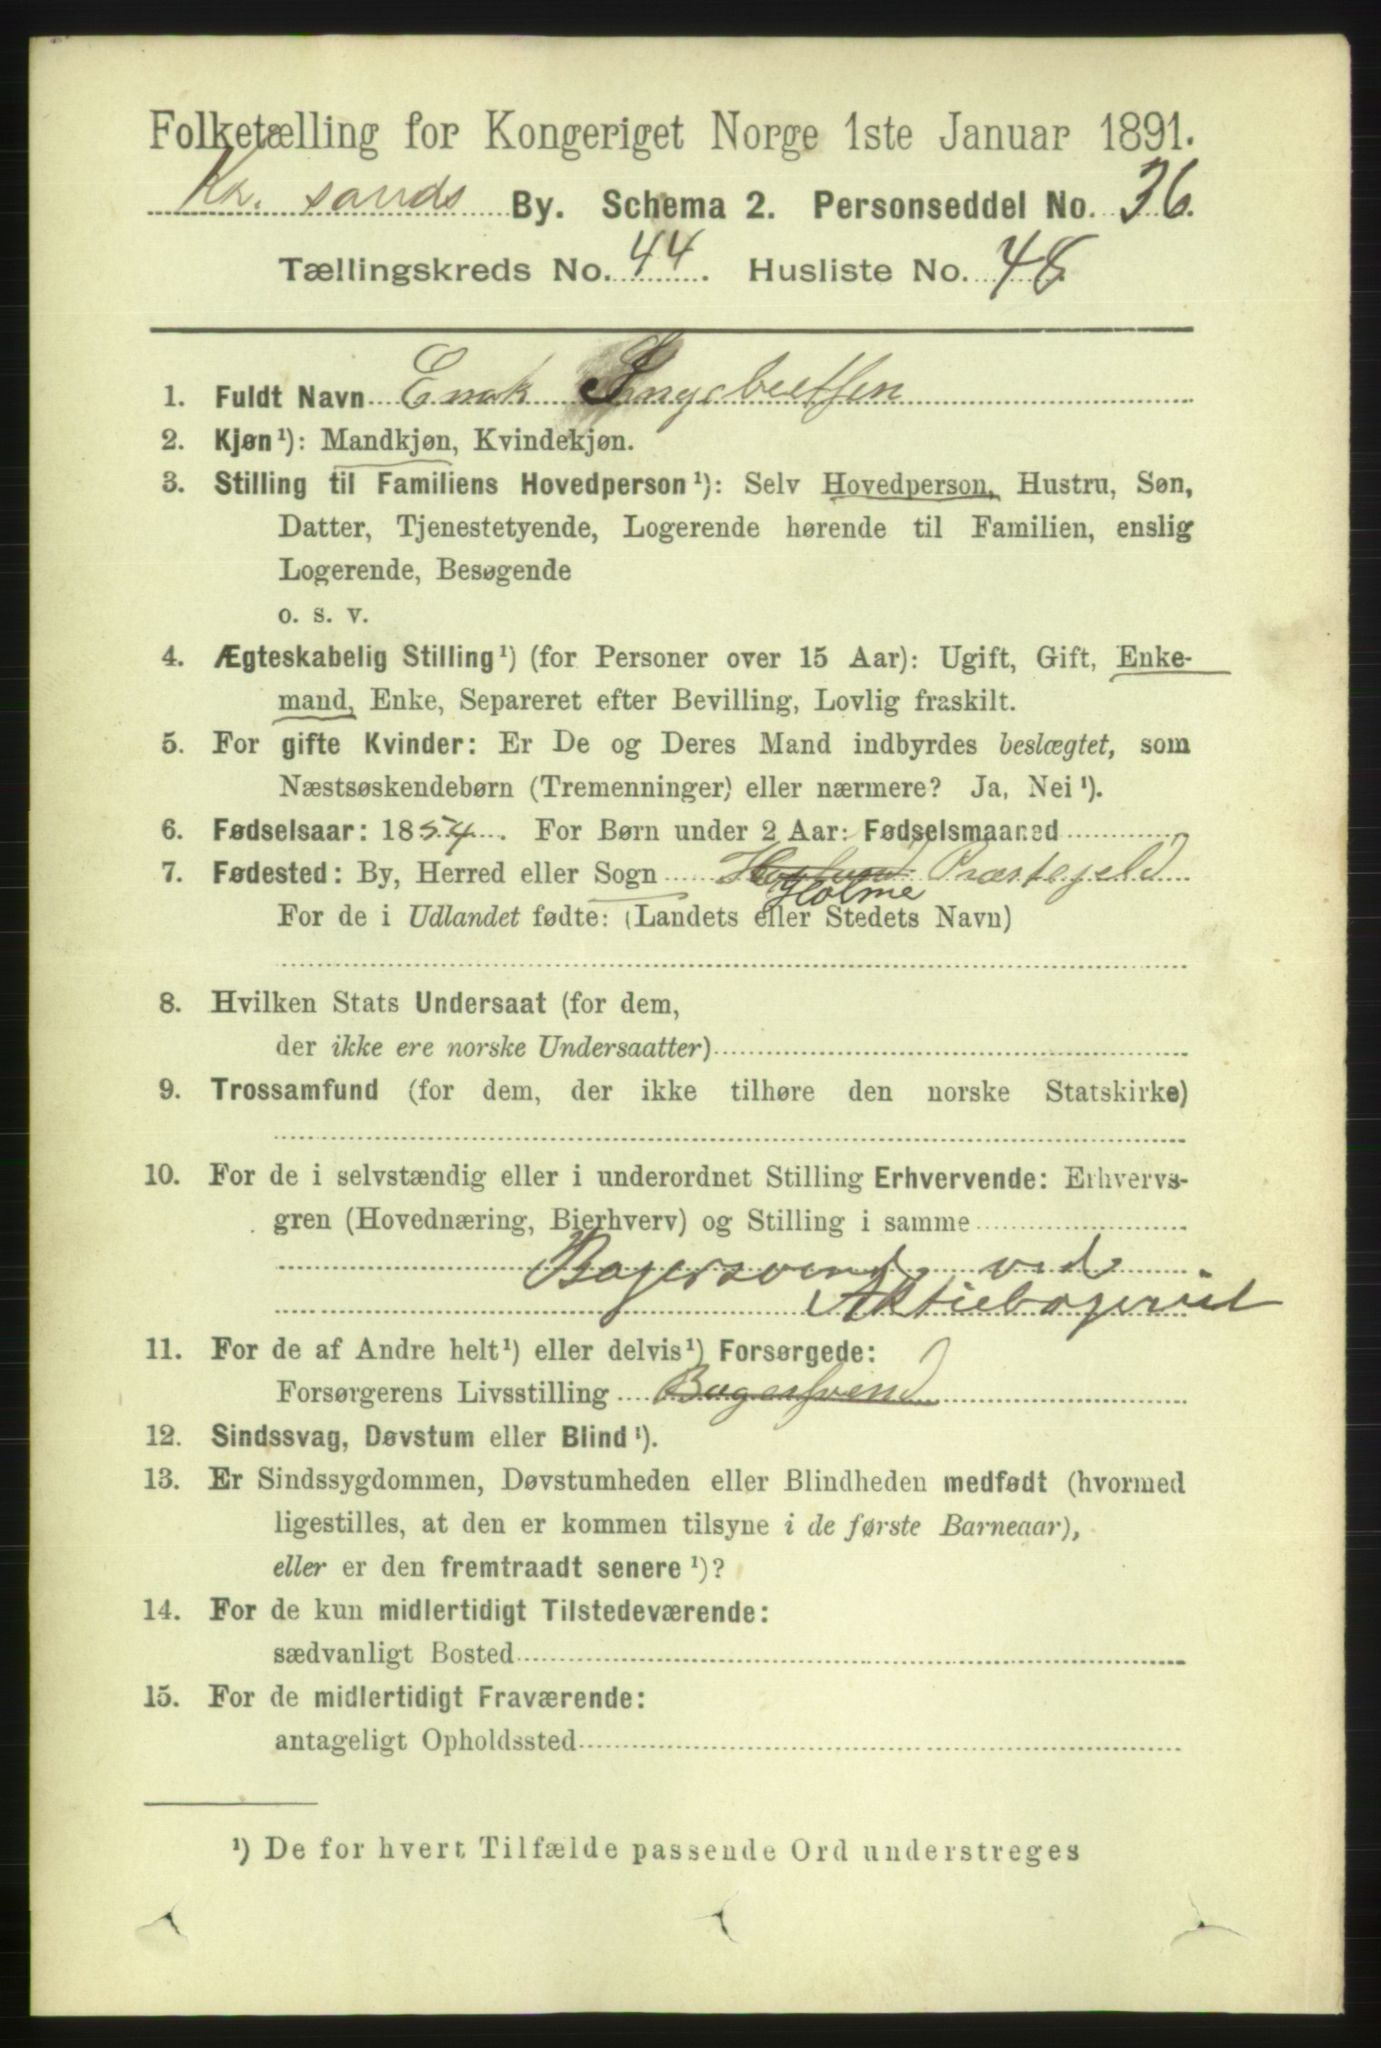 Folketælling for Kongeriget Norge 1ste Januar 1891.
Kr. sands By. Schema 2. Personseddel No. 36.
Tællingskreds No. 44. Husliste No. 48
1. Fuldt Navn Enok Ingebretsen
2. Kjøn¹): Mandkjøn, Kvindekjøn.
3. Stilling til Familiens Hovedperson¹): Selv Hovedperson, Hustru, Søn,
Datter, Tjenestetyende, Logerende hørende til Familien, enslig
Logerende, Besøgende
o. s. v.
4. Ægteskabelig Stilling¹) (for Personer over 15 Aar): Ugift, Gift, Enke-
mand, Enke, Separeret efter Bevilling, Lovlig fraskilt.
5. For gifte Kvinder: Er De og Deres Mand indbyrdes beslægtet, som
Næstsøskendebørn (Tremenninger) eller nærmere? Ja, Nei¹).
6. Fødselsaar: 1854. For Børn under 2 Aar: Fødselsmaaned
7. Fødested: By, Herred eller Sogn Præstegjeld
Holme
For de i Udlandet fødte: (Landets eller Stedets Navn)
8. Hvilken Stats Undersaat (for dem,
der ikke ere norske Undersaatter)
9. Trossamfund (for dem, der ikke tilhøre den norske Statskirke)
10. For de i selvstændig eller i underordnet Stilling Erhvervende: Erhvervs-
gren (Hovednæring, Bierhverv) og Stilling i samme
Bagersvend ved
Aktiebageriet
11. For de af Andre helt¹) eller delvis¹) Forsørgede:
Forsørgerens Livsstilling Bagersvend
12. Sindssvag, Døvstum eller Blind¹).
13. Er Sindssygdommen, Døvstumheden eller Blindheden medfødt (hvormed
ligestilles, at den er kommen tilsyne i de første Barneaar),
eller er den fremtraadt senere¹)?
14. For de kun midlertidigt Tilstedeværende:
sædvanligt Bosted
15. For de midlertidigt Fraværende:
antageligt Opholdssted
¹) De for hvert Tilfælde passende Ord understreges